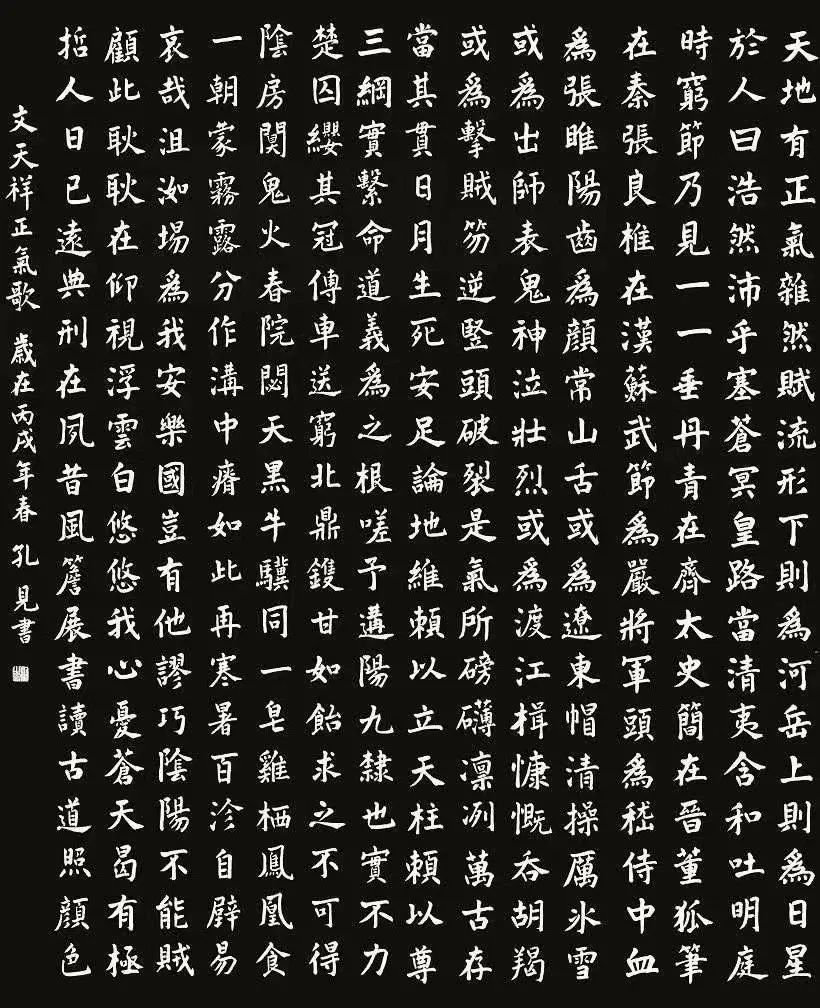 天地有正氣雜然賦流形下則為河岳上則為日星
於人曰浩然沛乎塞蒼冥皇路當清夷含和吐明庭
時窮節乃見一一垂丹青在齊太史簡在晉董狐筆
在秦張良椎在漢蘇武節為嚴將軍頭為嵇侍中血
為張睢陽齒為顏常山舌或為遼東帽清操厲氷雪
或為出師表鬼神泣壯烈或為渡江楫慷慨吞胡羯
或為擊賊笏逆竪頭破裂是氣所磅礴凜冽萬古存
當其貫日月生死安足論地維賴以立天柱賴以尊
三綱實繫命道義為之根嗟予遘陽九隸也實不力
楚囚纓其冠傳車送窮北鼎鑊甘如飴求之不可得
陰房闃鬼火春院閟天黑牛驥同一皂雞栖鳳凰食
一朝蒙霧露分作溝中瘠如此再寒暑百沴自辟易
哀哉沮洳場為我安樂國豈有他謬巧陰陽不能賊
顧此耿耿在仰視浮雲白悠悠我心憂蒼天曷有極
哲人日已遠典刑在夙昔風簷展書讀古道照顏色
文天祥正氣歌 歲在丙戌年春 孔見書